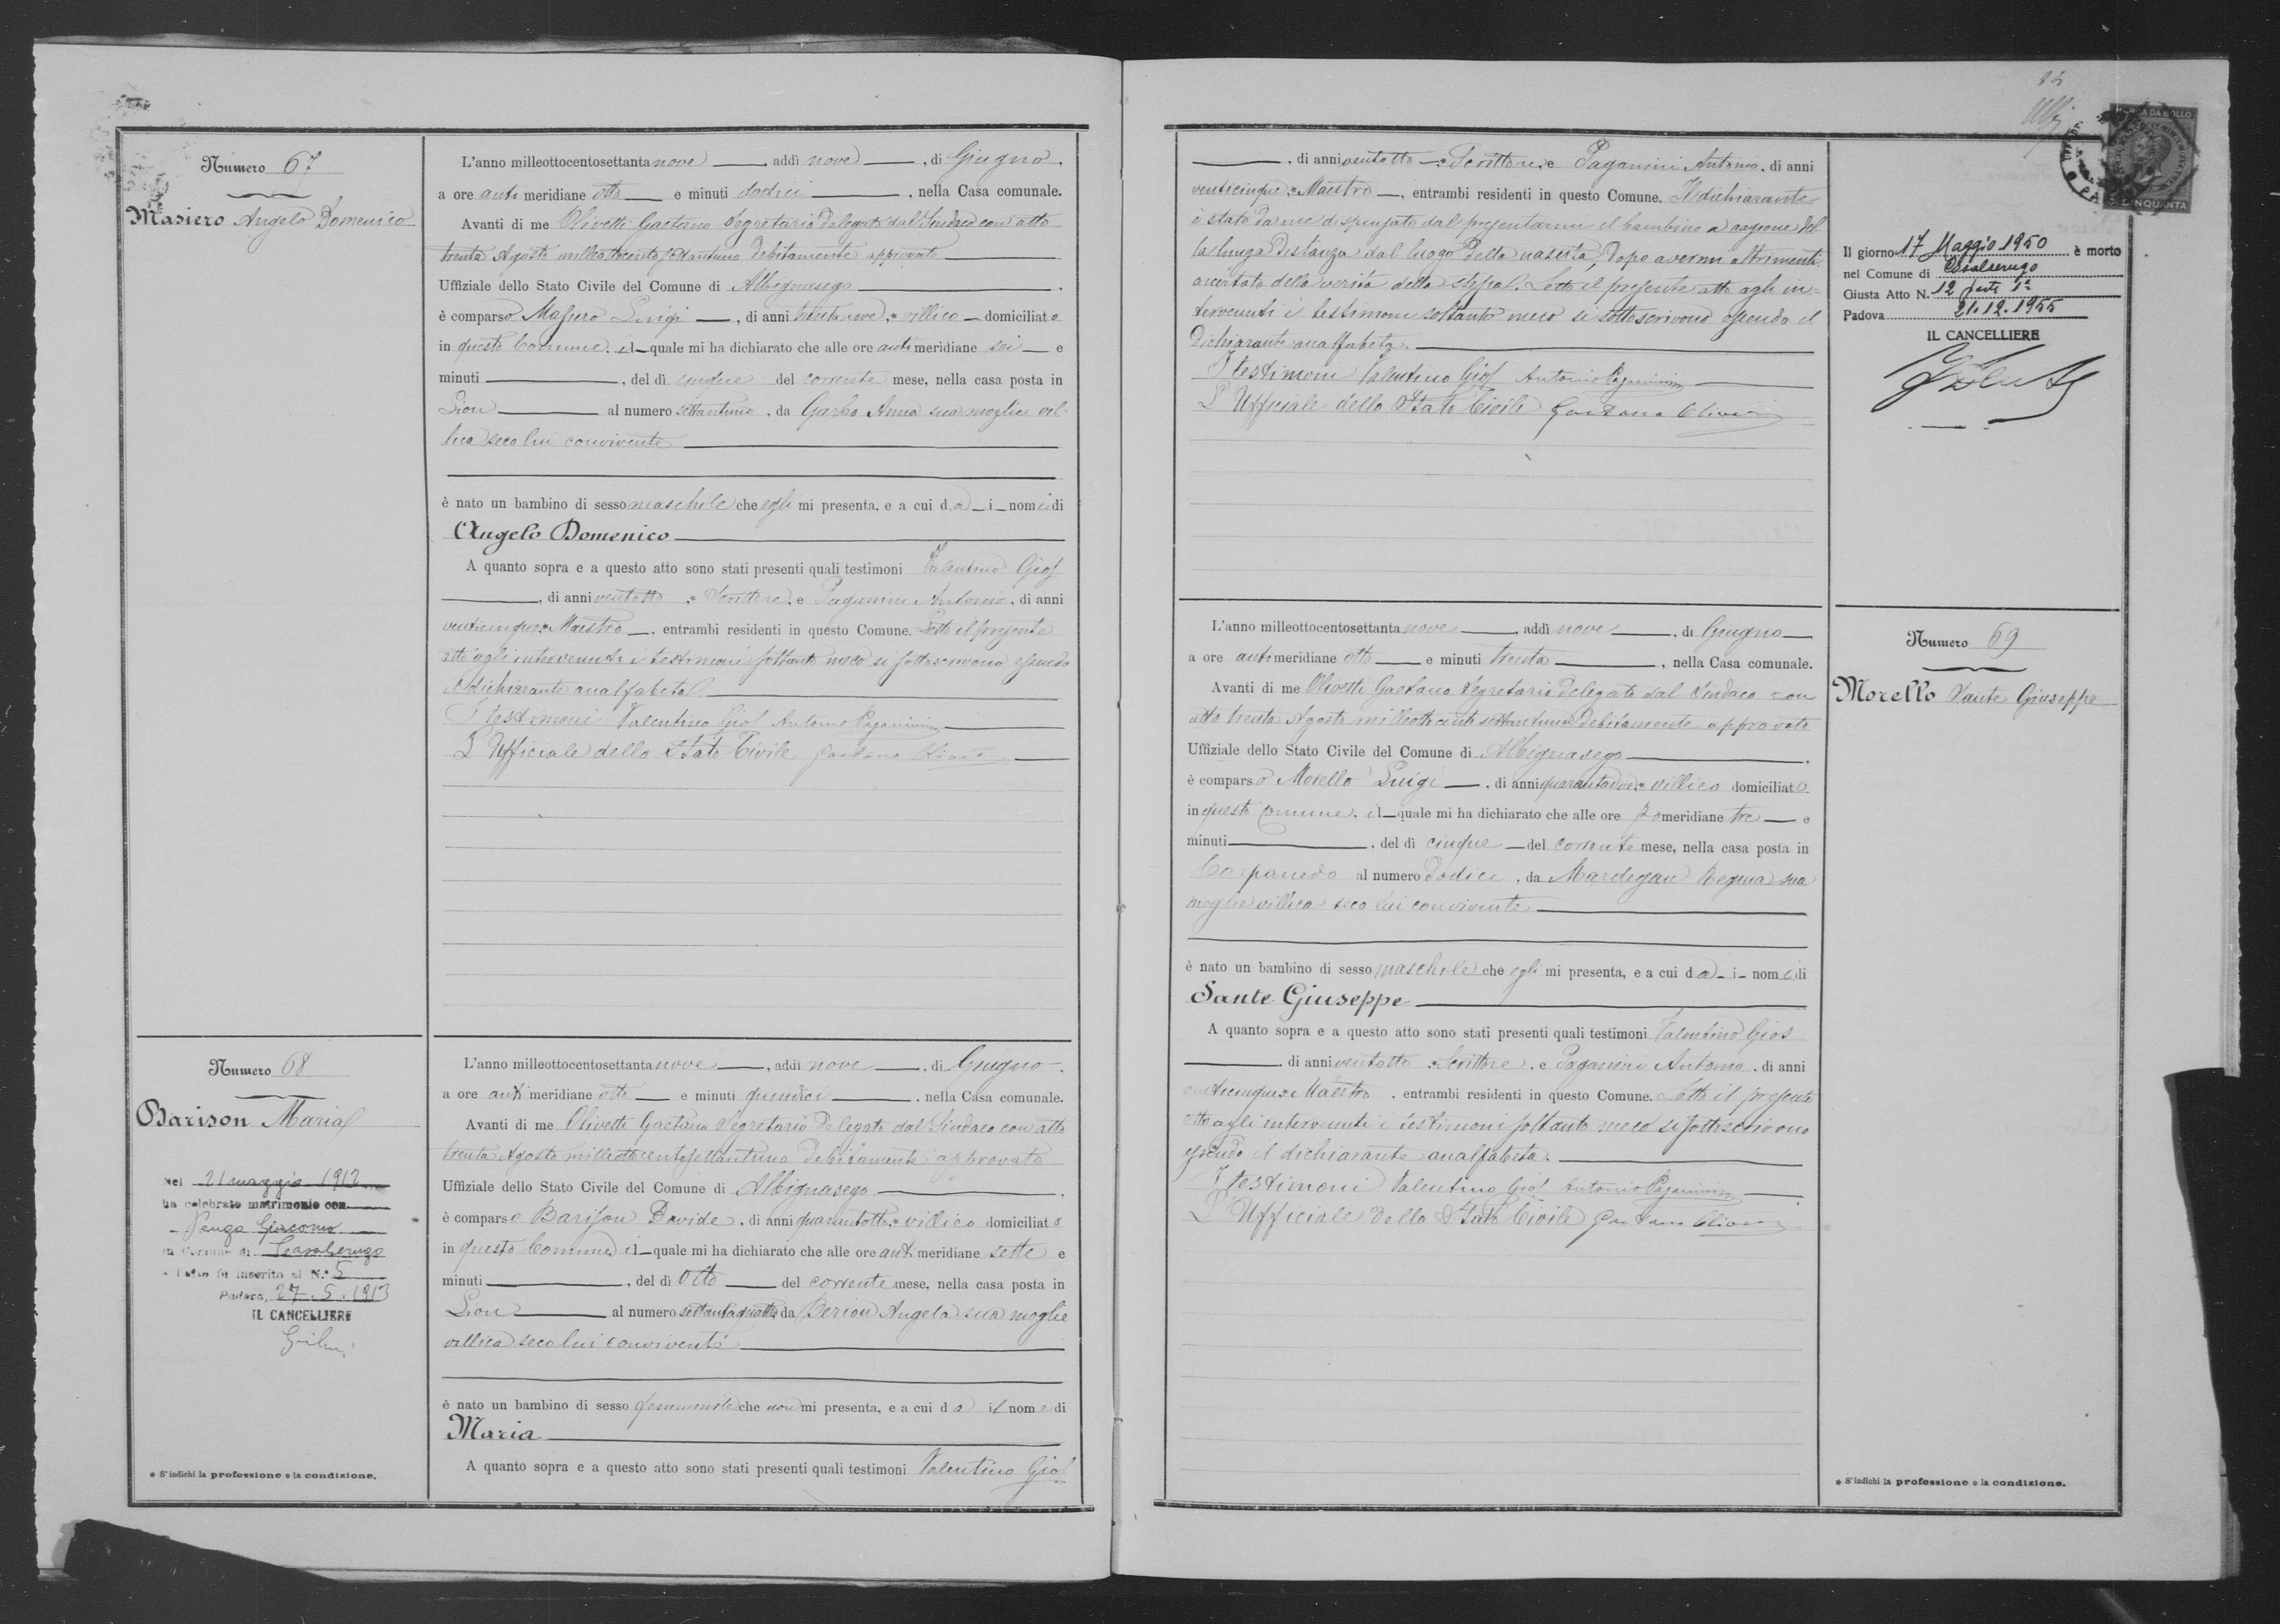 Numero 67
Masiero Angelo Domenico
L'anno milleottocentosettantanove, addì nove, di Giugno,
a ore antimeridiane otto e minuti dodici, nella Casa comunale.
Avanti di me Olivetti Gaetano Segretario delegato dal Sindaco con atto
trenta Agosto milleottocentosettantuno debitamente approvato
Uffiziale dello Stato Civile del Comune di Albignasego.
è comparso Masiero Luigi, di anni trentanove,* villico domiciliato
in questo Comune, il quale mi ha dichiarato che alle ore antimeridiane sei e
minuti, del dì cinque del corrente mese, nella casa posta in
Lion al numero settantuno, da Garbo Anna sua moglie vil-
lica seco lui convivente
è nato un bambino di sesso maschile che egli mi presenta, e a cui dà i nomi di
Angelo Domenico
A quanto sopra e a questo atto sono stati presenti quali testimoni Valentino Gios
, di anni ventotto,* Scrittore, e Paganini Antonio, di anni
venticinque,* Maestro, entrambi residenti in questo Comune. Letto il presente
atto agli intervenuti i testimoni soltanto meco si sottoscrivono essendo
il dichiarante analfabeta.
I testimoni Valentino Gios Antonio Paganini
L'Ufficiale dello Stato Civile Gaetano Olivetti
Numero 68
Barison Maria
Nel 21 maggio 1913
ha celebrato matrimonio con
Giacomo
in Comune di Casalserugo
e l'atto fu inserito al N.° 5
Padova, 27.5.1913
IL CANCELLIERE
L'anno milleottocentosettantanove, addì nove, di Giugno.
a ore antimeridiane otto e minuti quindici, nella Casa comunale.
Avanti di me Olivetti Gaetano Segretario delegato dal Sindaco con atto
trenta Agosto milleottocentosettantuno debitamente approvato
Uffiziale dello Stato Civile del Comune di Albignasego.
è comparso Barison Davide, di anni quarantotto,* villico domiciliato
in questo Comune il quale mi ha dichiarato che alle ore antimeridiane sette e
minuti, del dì otto del corrente mese, nella casa posta in
Lion al numero settantaquattro da Berion Angela sua moglie
villica seco lui convivente
è nato un bambino di sesso femminile che non mi presenta, e a cui dà il nome di
Maria
A quanto sopra e a questo atto sono stati presenti quali testimoni Valentino Gios
* S'indichi la professione o la condizione.
, di anni ventotto,* Scrittore, e Paganini Antonio, di anni
venticinque,* Maestro, entrambi residenti in questo Comune. Il dichiarante
è stato da me dispensato dal presentarmi il bambino a cagione del
la lunga distanza dal luogo della nascita, dopo avermi altrimenti
accertato della verità della stessa. Letto il presente atto agli in-
tervenuti i testimoni soltanto meco si sottoscrivono essendo il
dichiarante analfabeta.
I testimoni Valentino Gios Antonio Paganini
L'Ufficiale dello Stato Civile Gaetano Olivetti
MARCA DA BOLLO
CINQUANTA
Il giorno 17 Maggio 1950 è morto
nel Comune di Casalserugo
Giusta Atto N. 12 parte 1ª
Padova 21.12.1955
IL CANCELLIERE
L'anno milleottocentosettantanove, addì nove, di Giugno
a ore antimeridiane otto e minuti trenta, nella Casa comunale.
Avanti di me Olivetti Gaetano Segretario delegato dal Sindaco con
atto trenta Agosto milleottocentosettantuno debitamente approvato
Uffiziale dello Stato Civile del Comune di Albignasego.
è comparso Morello Luigi, di anni quarantadue,* villico domiciliato
in questo Comune, il quale mi ha dichiarato che alle ore pomeridiane tre e
minuti, del dì cinque del corrente mese, nella casa posta in
Carpanedo al numero dodici, da Mardegan Regina sua
moglie villica seco lui convivente
è nato un bambino di sesso maschile che egli mi presenta, e a cui dà i nomi di
Sante Giuseppe
A quanto sopra e a questo atto sono stati presenti quali testimoni Valentino Gios
, di anni ventotto,* Scrittore, e Paganini Antonio, di anni
venticinque,* Maestro, entrambi residenti in questo Comune. Letto il presente
atto agli intervenuti i testimoni soltanto meco si sottoscrivono
essendo il dichiarante analfabeta.
I testimoni Valentino Gios Antonio Paganini
L'Ufficiale dello Stato Civile Gaetano Olivetti
Numero 69
Morello Sante Giuseppe
* S'indichi la professione o la condizione.